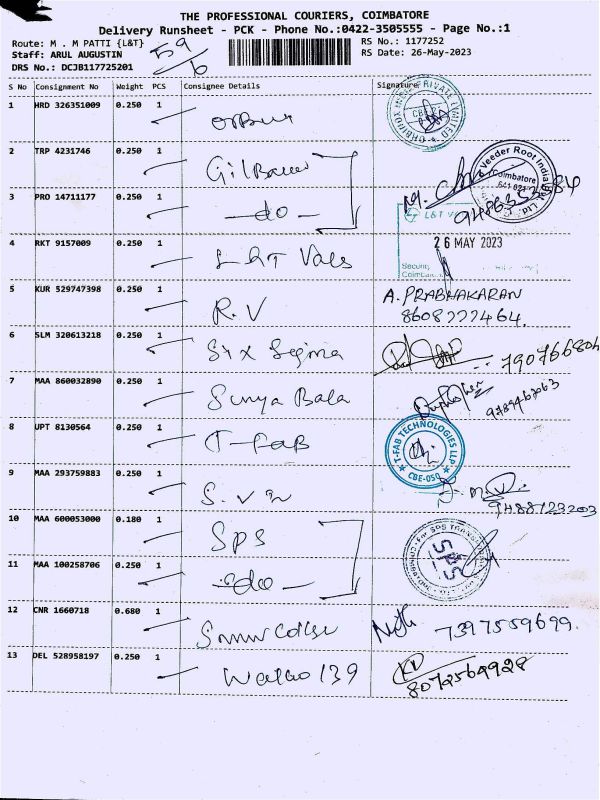 THE PROFESSIONAL COURIERS, COIMBATORE
Delivery Runsheet - PCK - Phone No.:0422-3505555 - Page No.:1
Route: M . M PATTI {L&T}
RS No.: 1177252
Staff: ARUL AUGUSTIN
RS Date: 26-May-2023
DRS No.: DCJB117725201
S No Consignment No Weight PCS Consignee Details Signature
1 HRD 326351009 0.250 1
2 TRP 4231746 0.250 1
Veeder Root India
Coimbatore
3 PRO 14711177 0.250 1 -do-
L&T
4 RKT 9157009 0.250 1 L&T Vales 26 MAY 2023
5 KUR 529747398 0.250 1 R.V A. PRABHAKARAN
8608222464.
6 SLM 320613218 0.250 1 Six Segma
7 MAA 860032890 0.250 1 Surya Bala
8 UPT 8130564 0.250 1 T-FAB T-FAB TECHNOLOGIES LLP
9 MAA 293759883 0.250 1
10 MAA 600053000 0.180 1 SPS
11 MAA 100258706 0.250 1 -do-
12 CNR 1660718 0.680 1 7397559699.
13 DEL 528958197 0.250 1 139
8072569928